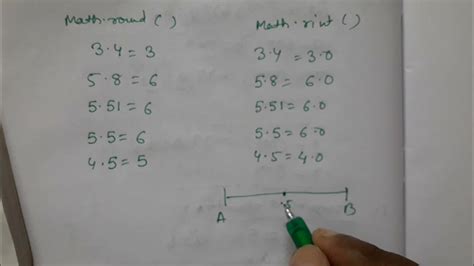 Math.round( )
3.4 = 3
5.8 = 6
5.51 = 6
5.5 = 6
4.5 = 5
Math.rint( )
3.4 = 3.0
5.8 = 6.0
5.51 = 6.0
5.5 = 6.0
4.5 = 4.0
A .5 B